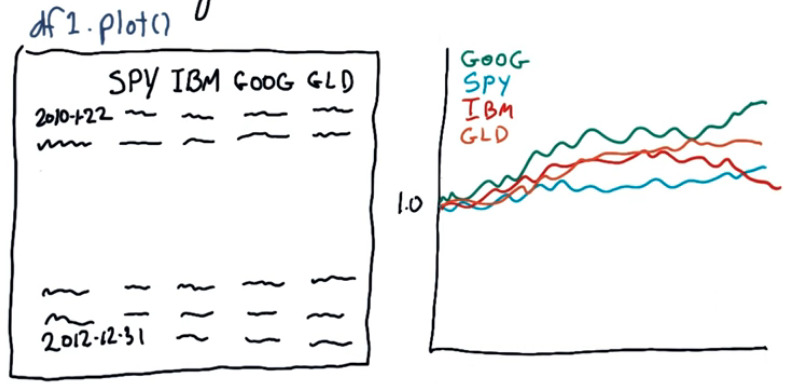 df1.plot()
SPY IBM GOOG GLD
2010-1-22
2012-12-31
GOOG
SPY
IBM
GLD
1.0